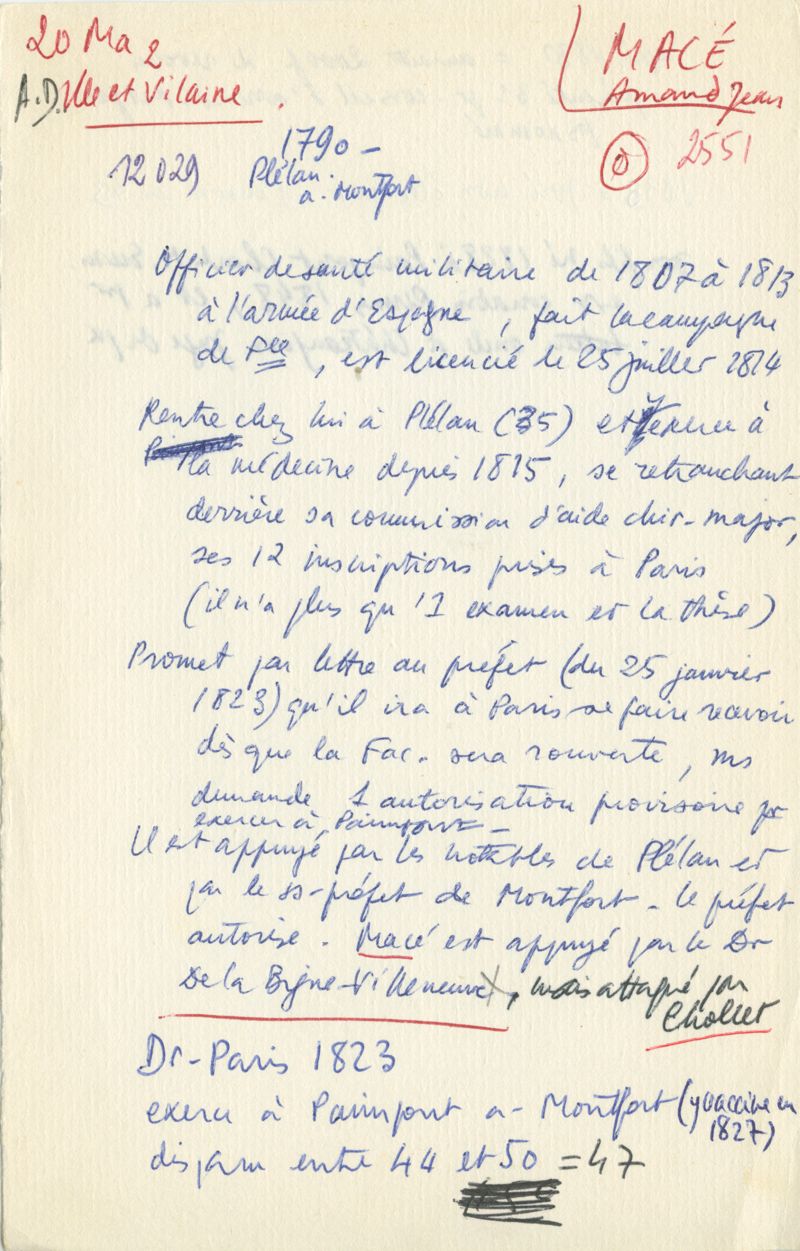 20 Ma 2
A.D. Ille et Vilaine.
MACÉ
Amand Jean
2551
12029
1790 -
Plélan.
a. Montfort
Officier de santé militaire de 1807 à 1813
à l'armée d'Espagne, fait la campagne
de Fce, est licencié le 25 juillet 1814
Rentre chez lui à Plélan (35) et exerce à
la médecine depuis 1815, se retranchant
derrière sa commission d'aide chir-major,
ses 12 inscriptions prises à Paris
(il n'a plus qu'1 examen et la thèse)
Promet par lettre au préfet (du 25 janvier
1823) qu'il ira à Paris se faire recevoir
dès que la Fac. sera rouverte, ms
demande 1 autorisation provisoire pr
exercer à Paimpont -
Il est appuyé par les notables de Plélan et
par le ss-préfet de Montfort - le préfet
autorise. Macé est appuyé par le Dr
De la Bigne-Villeneuve, mais attaqué par
Chollet
Dr-Paris 1823
exerce à Paimpont a- Montfort (y vaccine en
1827)
disparu entre 44 et 50 = 47